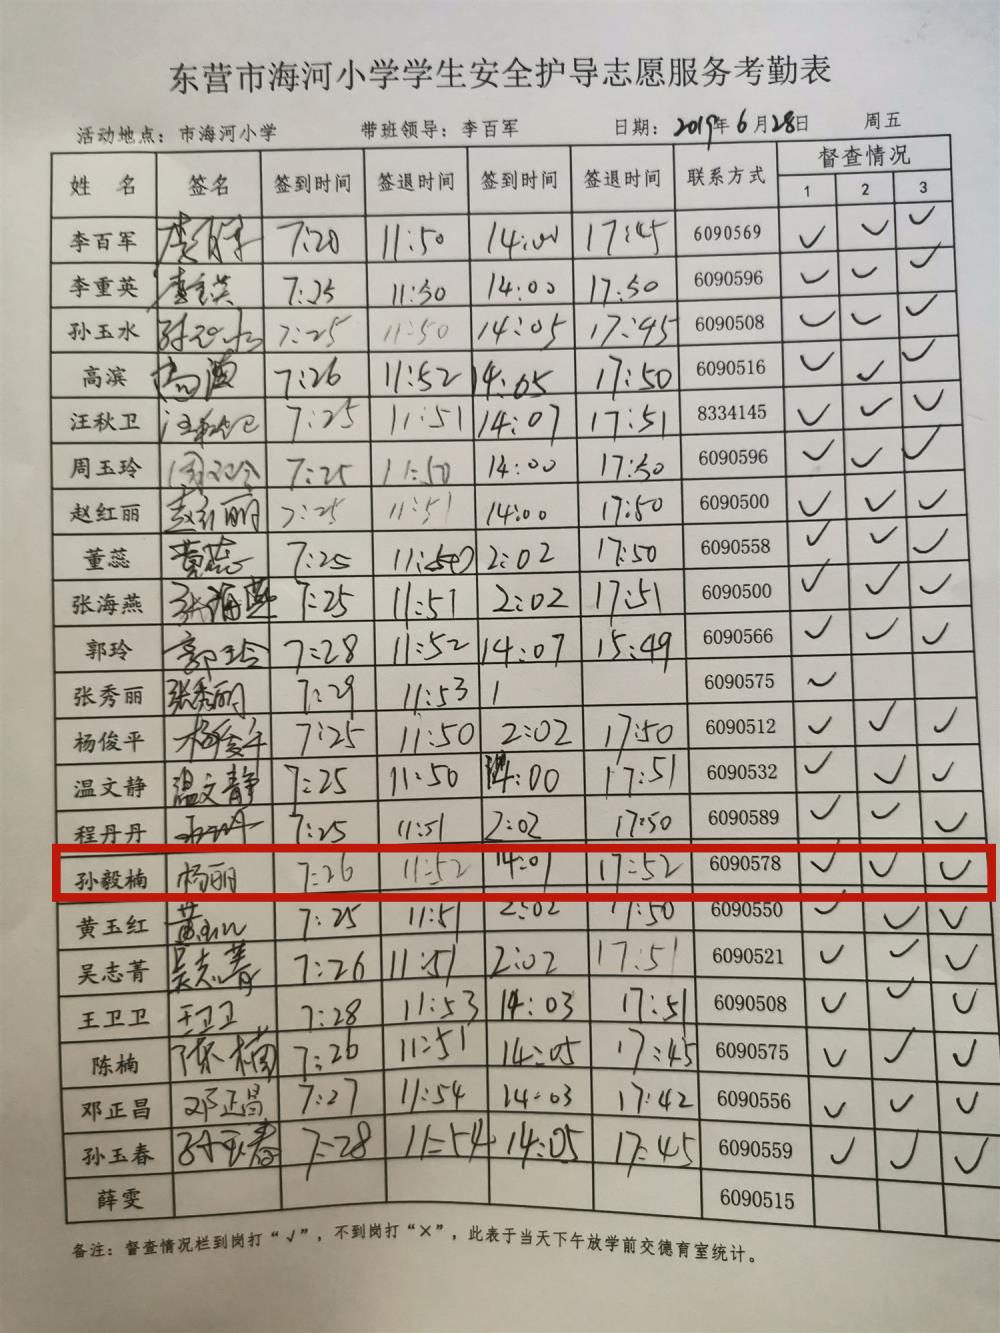 东营市海河小学学生安全护导志愿服务考勤表
活动地点：市海河小学 带班领导：李百军 日期：2019年6月28日 周五
姓 名 签名 签到时间 签退时间 签到时间 签退时间 联系方式 督查情况
1 2 3
李百军 7:20 11:50 14:00 17:45 6090569 ✓ ✓ ✓
李重英 李重英 7:25 11:50 14:00 17:50 6090596 ✓ ✓ ✓
孙玉水 孙玉水 7:25 11:50 14:05 17:45 6090508 ✓ ✓ ✓
高滨 高滨 7:26 11:52 14:05 17:50 6090516 ✓ ✓ ✓
汪秋卫 汪秋卫 7:25 11:51 14:07 17:51 8334145 ✓ ✓ ✓
周玉玲 周玉玲 7:25 11:50 14:00 17:50 6090596 ✓ ✓ ✓
赵红丽 赵红丽 7:25 11:51 14:00 17:50 6090500 ✓ ✓ ✓
董蕊 董蕊 7:25 11:50 2:02 17:50 6090558 ✓ ✓ ✓
张海燕 张海燕 7:25 11:51 2:02 17:51 6090500 ✓ ✓ ✓
郭玲 郭玲 7:28 11:52 14:07 15:49 6090566 ✓ ✓ ✓
张秀丽 张秀丽 7:29 11:53 1 6090575 ✓
杨俊平 杨俊平 7:25 11:50 2:02 17:50 6090512 ✓ ✓ ✓
温文静 温文静 7:25 11:50 14:00 17:51 6090532 ✓ ✓ ✓
程丹丹 7:25 11:51 2:02 17:50 6090589 ✓ ✓ ✓
孙毅楠 杨丽 7:26 11:52 14:01 17:52 6090578 ✓ ✓ ✓
黄玉红 黄玉红 7:25 11:51 2:02 17:50 6090550 ✓ ✓ ✓
吴志菁 吴志菁 7:26 11:51 2:02 17:51 6090521 ✓ ✓ ✓
王卫卫 王卫卫 7:28 11:53 14:03 17:51 6090508 ✓ ✓ ✓
陈楠 陈楠 7:26 11:51 14:05 17:45 6090575 ✓ ✓ ✓
邓正昌 邓正昌 7:27 11:54 14:03 17:42 6090556 ✓ ✓ ✓
孙玉春 孙玉春 7:28 11:54 14:05 17:45 6090559 ✓ ✓ ✓
薛雯 6090515
备注：督查情况栏到岗打“√”，不到岗打“×”，此表于当天下午放学前交德育室统计。